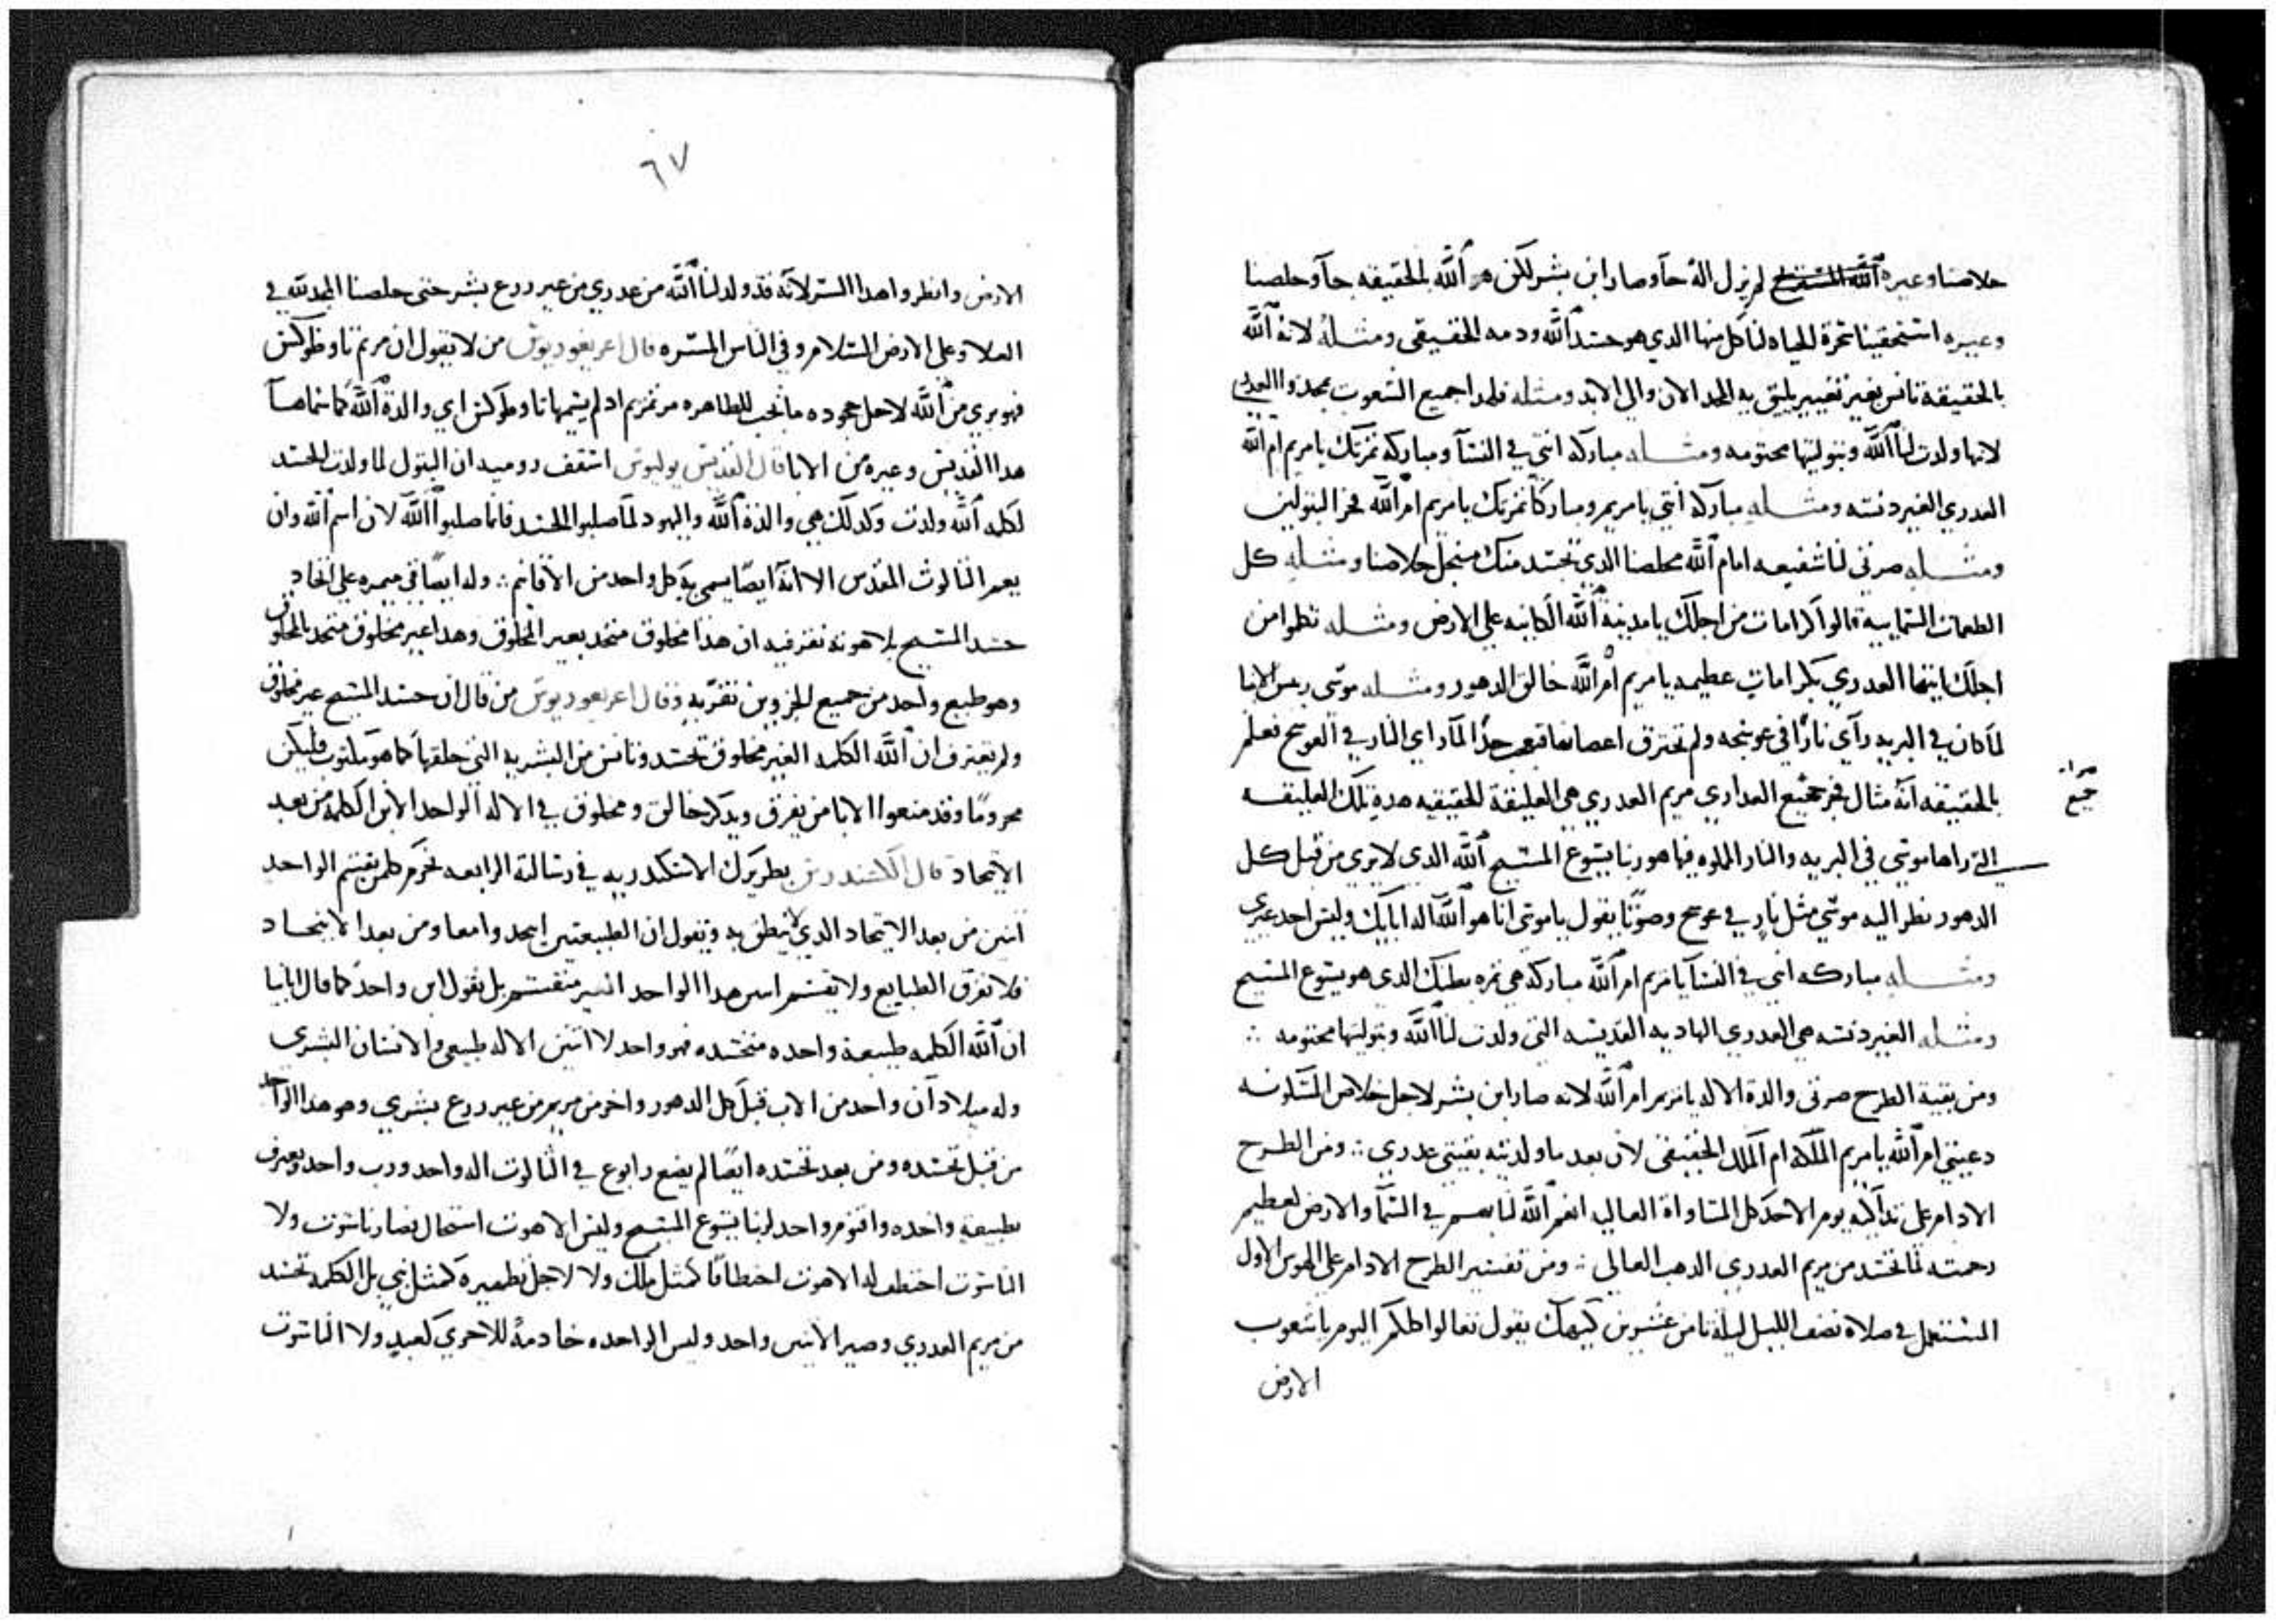 خلاصنا وغيره الله المسيح لم يزل اله جا وصار ابن بشر لكن هو الله بالحقيقه جا وخلصنا
وغيره استحقينا ثمرة الحياه لناكل منها الذي هو جسد الله ودمه الحقيقي ومثله لانه الله
بالحقيقة تانس بغير تغيير يليق به المجد الان والى الابد ومثله فلهدا جميع الشعوب يمجدوا العدرى
لانها ولدت لنا الله وبتوليتها مختومه ومثله مباركه انتي في النسا ومباركه ثمرتك يامريم ام الله
العدرى الغير دنسه ومثله مباركه انتي يامريم ومباركة ثمرتك يامريم ام الله فخر البتولين
ومثله صرتي لنا شفيعه امام الله مخلصنا الدي تجسد منك من اجل خلاصنا ومثله كل
الطغمات السماييه قالوا كرامات من اجلك يامدينة الله الكاينه على الارض ومثله نطوا من
اجلك ايتها العدرى بكرامات عظيمه يامريم ام الله خالق الدهور ومثله موسى ريس الانبيا
لما كان في البريه راي نارا في عوسجه ولم تحترق اعصانها لما راي النار في العوسج فعلم
بالحقيقه انه مثال فخر جميع العداري مريم العدرى هي العليقة الحقيقيه هده تلك العليقه
جميع
التي راها موسى في البريه والنار المملوه فيها هو ربنا يسوع المسيح الله الدي لا يري من قبل كل
الدهور نظر اليه موسى مثل نار في عوسج وصوتا يقول ياموسى انا هو الله اله ابايك وليس احد غيري
ومثله مباركه انتي في النسا يامريم ام الله مباركة هي ثمره بطنك الدي هو يسوع المسيح
ومثله الغير دنسه هي العدرى الهاديه القديسه التي ولدت لنا الله وبتوليتها مختومه
ومن بقية الطرح صرتي والدة الاله يامريم ام الله لانه صار ابن بشر لاجل خلاص
دعيتي ام الله يامريم الملكه ام الملك الحقيقي لان بعد ما ولدتيه بقيتي عدرى ومن الطرح
الادام على تداكية يوم الاحد كل السماواة العاليه انعم الله لنا في السما والارض لعظيم
رحمته لما تجسد من مريم العدرى الدهب العالي ومن تفسير الطرح الادام على الهوس الاول
المستعمل في صلاه نصف الليل ليلة تامن عشرين كيهك يقول تعالوا كلكم اليوم ياشعوب
الارض
٦٧
الارض وانظروا هدا السر لانه قد ولد لنا الله من عدرى من غير زرع بشر حتى خلصنا المجد لله في
العلا وعلى الارض السلام وفي الناس المسره قال اغريغوريوس من لا يقول ان مريم تاوطوكس
فهو بري من الله لاجل جحوده ما يجب للطاهره مرتمريم اد لم يسميها تاوطوكس اي والدة الله كما سماها
هدا القديس وغيره من الابا قال القديس يوليوس اسقف روميه ان البتول لما ولدت الجسد
لكلمه الله ولدت وكدلك هي والدة الله واليهود لما صلبوا الجسد فانما صلبوا الله لان اسم الله وان
يعم الثالوث المقدس الا انه ايضا يسمى به كل واحد من الاقانيم وله ايضا في ميمره على اتحاد
جسد المسيح بلاهوته نقر فيه ان هدا مخلوق متحد بغير المخلوق وهدا غير مخلوق متحد بالمخلوق
وهو طبع واحد من جميع الجزوين نقر به وقال اغريغوريوس من قال ان جسد المسيح غير مخلوق
ولم يعترف ان الله الكلمه الغير مخلوق تجسد وتانس من البشريه التي خلقها كما هو مكتوب فليكن
محروما وقد منعوا الابا من يفرق ويدكر خالق ومخلوق في الاله الواحد الابن الكلمه من بعد
الاتحاد قال الكسندروس بطريرك الاسكندريه في رسالته الرابعه نحرم كلمن يقسم الواحد
اتنين من بعد الاتحاد الدي لا ينطق به ونقول ان الطبيعتين اتحدوا معا ومن بعد الاتحاد
فلا نفرق الطبايع ولا نقسم اتنين هدا الواحد الغير منقسم بل نقول ابن واحد كما قال الابا
ان الله الكلمه طبيعة واحده متجسده فهو واحد لا اتنين الاله طبيعي والانسان البشري
وله ميلادان واحد من الاب قبل كل الدهور واخر من مريم من غير زرع بشري وهو هدا الواحد
من قبل تجسده ومن بعد تجسده ايضا لم يضع رابوع في الثالوت اله واحد ورب واحد ويعرف
بطبيعه واحده واقنوم واحد لربنا يسوع المسيح وليس الاهوت استحال فصار ناسوت ولا
الناسوت اختطف له الاهوت اختطافا كمثل ملك ولا لاجل تطهيره كمثل نبي بل الكلمه تجسد
من مريم العدرى وصير الاتنين واحد وليس الواحده خادمة للاخري كعبد ولا الناسوت